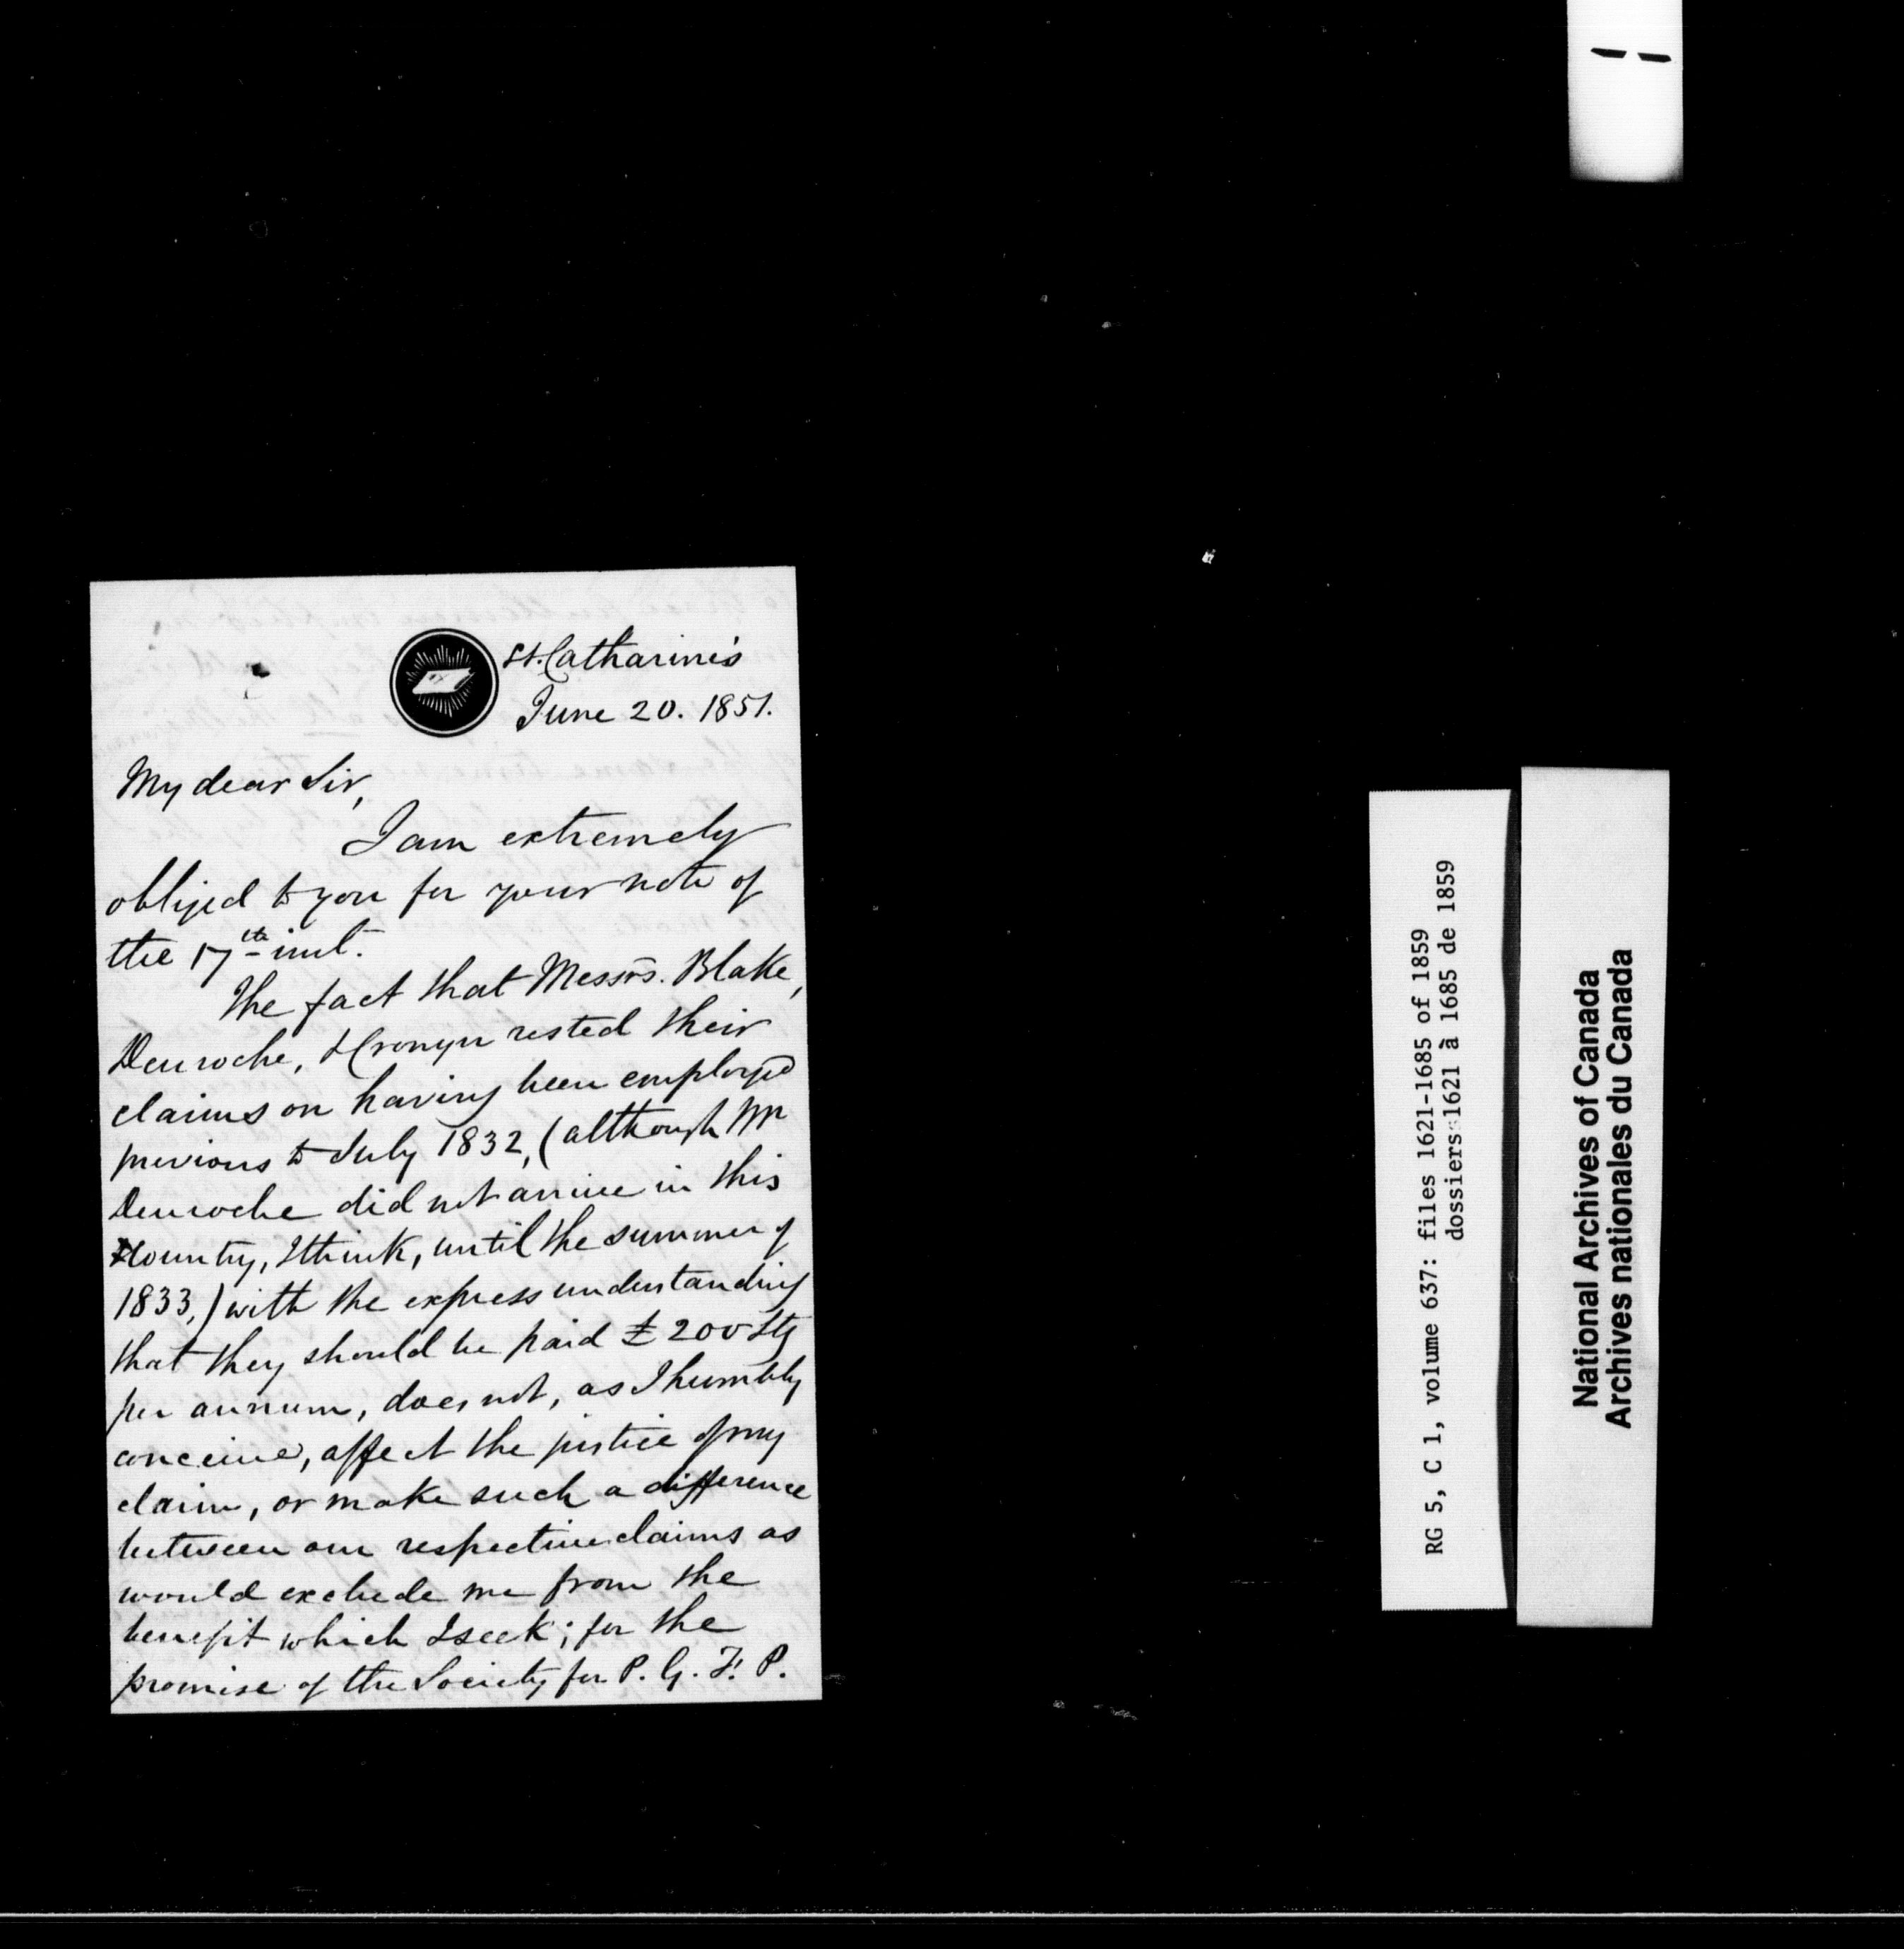 St. Catharine's
June 20. 1851.
My dear Sir,
I am extremely
obliged to you for your note of
the 17th inst.
The fact that Messrs. Blake,
Denroche, & Cronyn rested their
claims on having been employed
previous to July 1832, (although Mr
Denroche did not arrive in this
Country, I think, until the summer of
1833,) with the express understanding
that they should be paid £200 Stg
per annum, does not, as I humbly
conceive, affect the justice of my
claim, or make such a difference
between our respective claims as
would exclude me from the
benefit which I seek; for the
promise of the Society for P. G. F. P.
RG 5, C 1, volume 637: files 1621-1685 of 1859
dossiers 1621 à 1685 de 1859
National Archives of Canada
Archives nationales du Canada